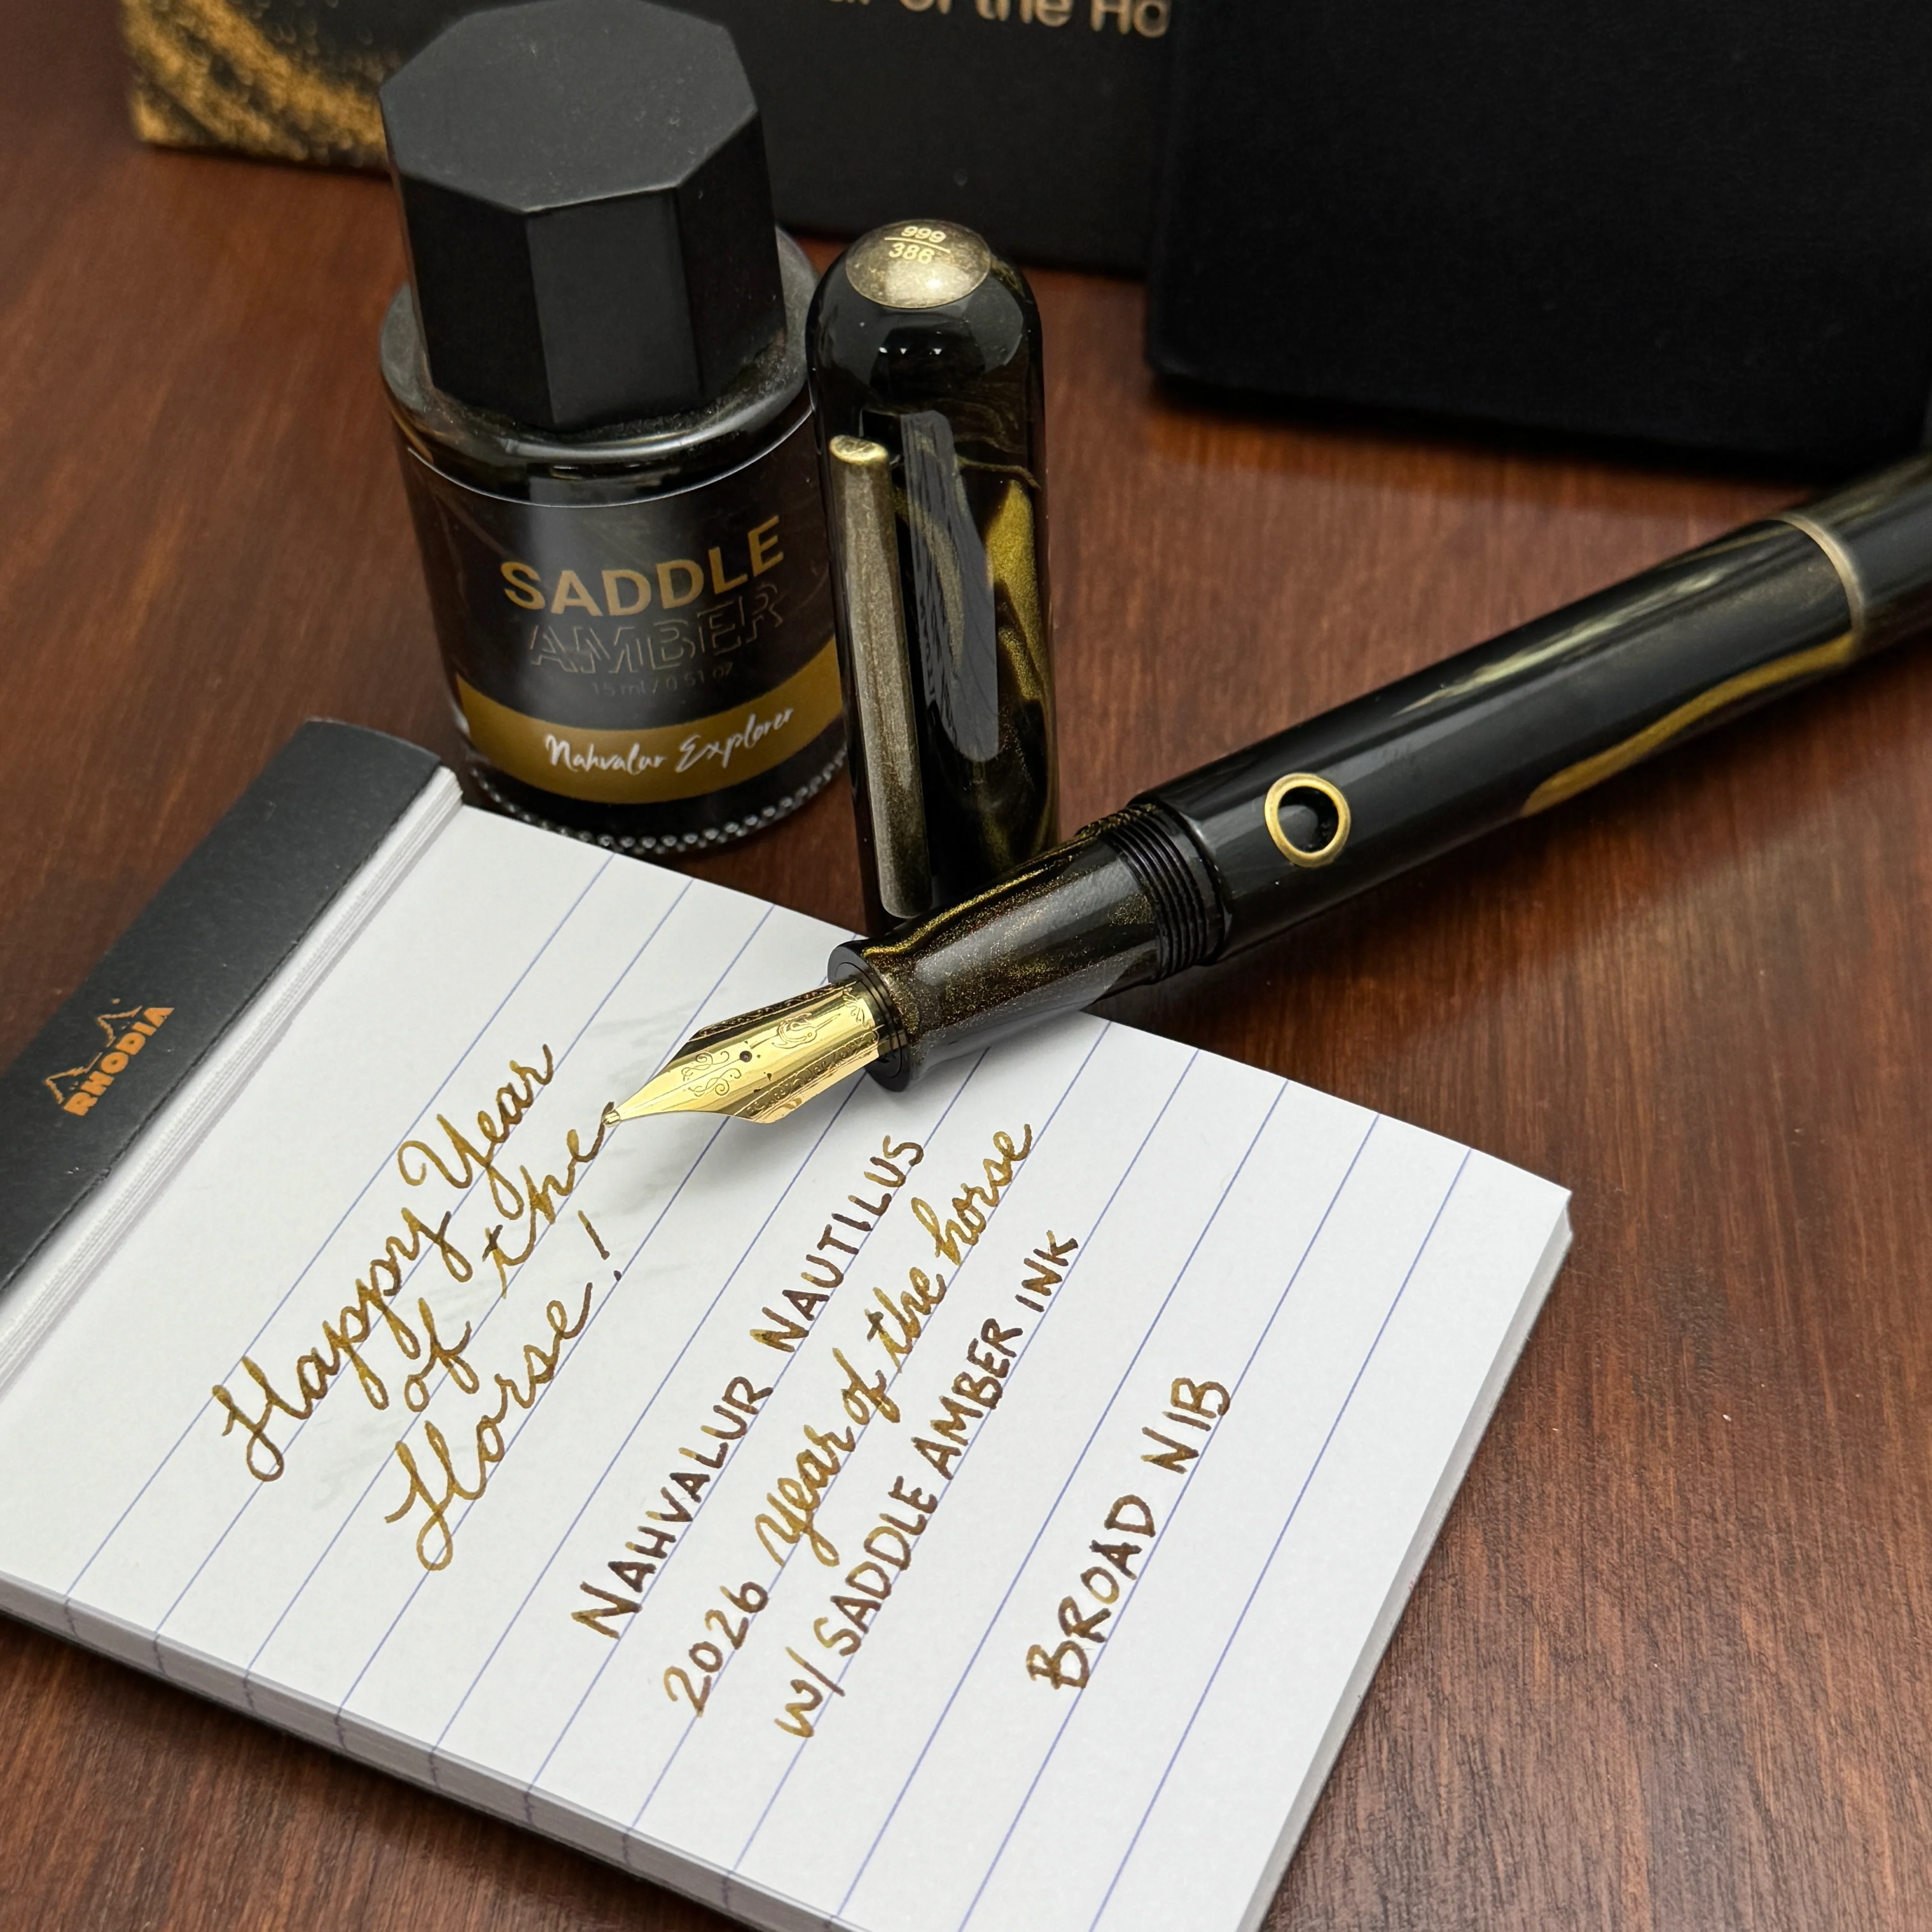 of the Ho
999
386
SADDLE
AMBER
15 ml / 0.51 oz
Nahvalur Explorer
RHODIA
Happy Year
of the
Horse!
NAHVALUR NAUTILUS
2026 Year of the horse
w/ SADDLE AMBER INK
BROAD NIB